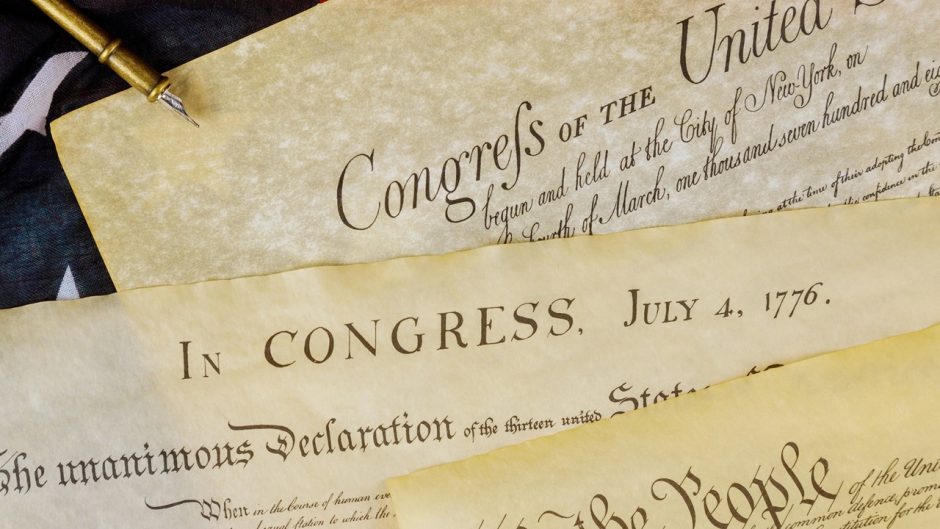 Congreſs OF THE United
begun and held at the City of New-York, on
Fourth of March, one thousand seven hundred and
at the time of their adopting the
confidence in the
IN CONGRESS, JULY 4, 1776.
The unanimous Declaration of the thirteen united States
When in the Course of human
equal station to which the
the People of the
common defence,
for the